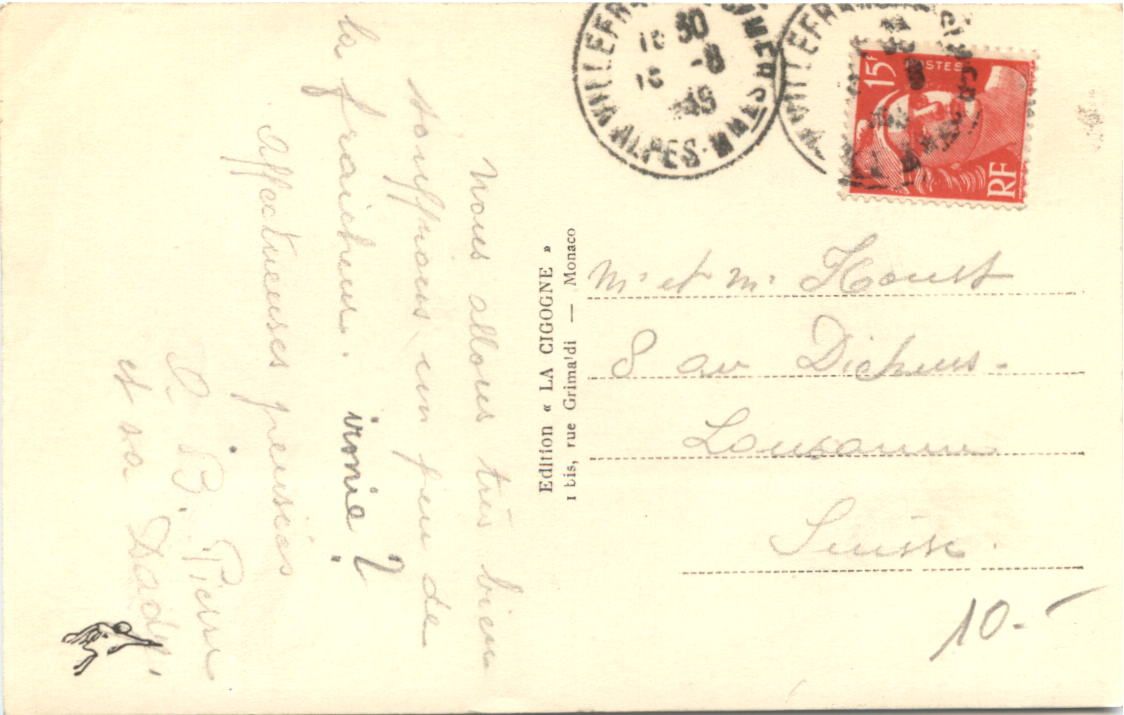 Nous allons très bien
souffrons un peu de
la fraicheur. ironie ?
Affectueuses pensées
P. B. Pierre
et sa Dady.
Edition « LA CIGOGNE »
1 bis, rue Grimaldi — Monaco
VILLEFRANCHE
ALPES-MMES
30
15 -8
49
15F
POSTES
RF
Mr et Mr
8 av Dickens.
Lausanne
Suisse.
10.-